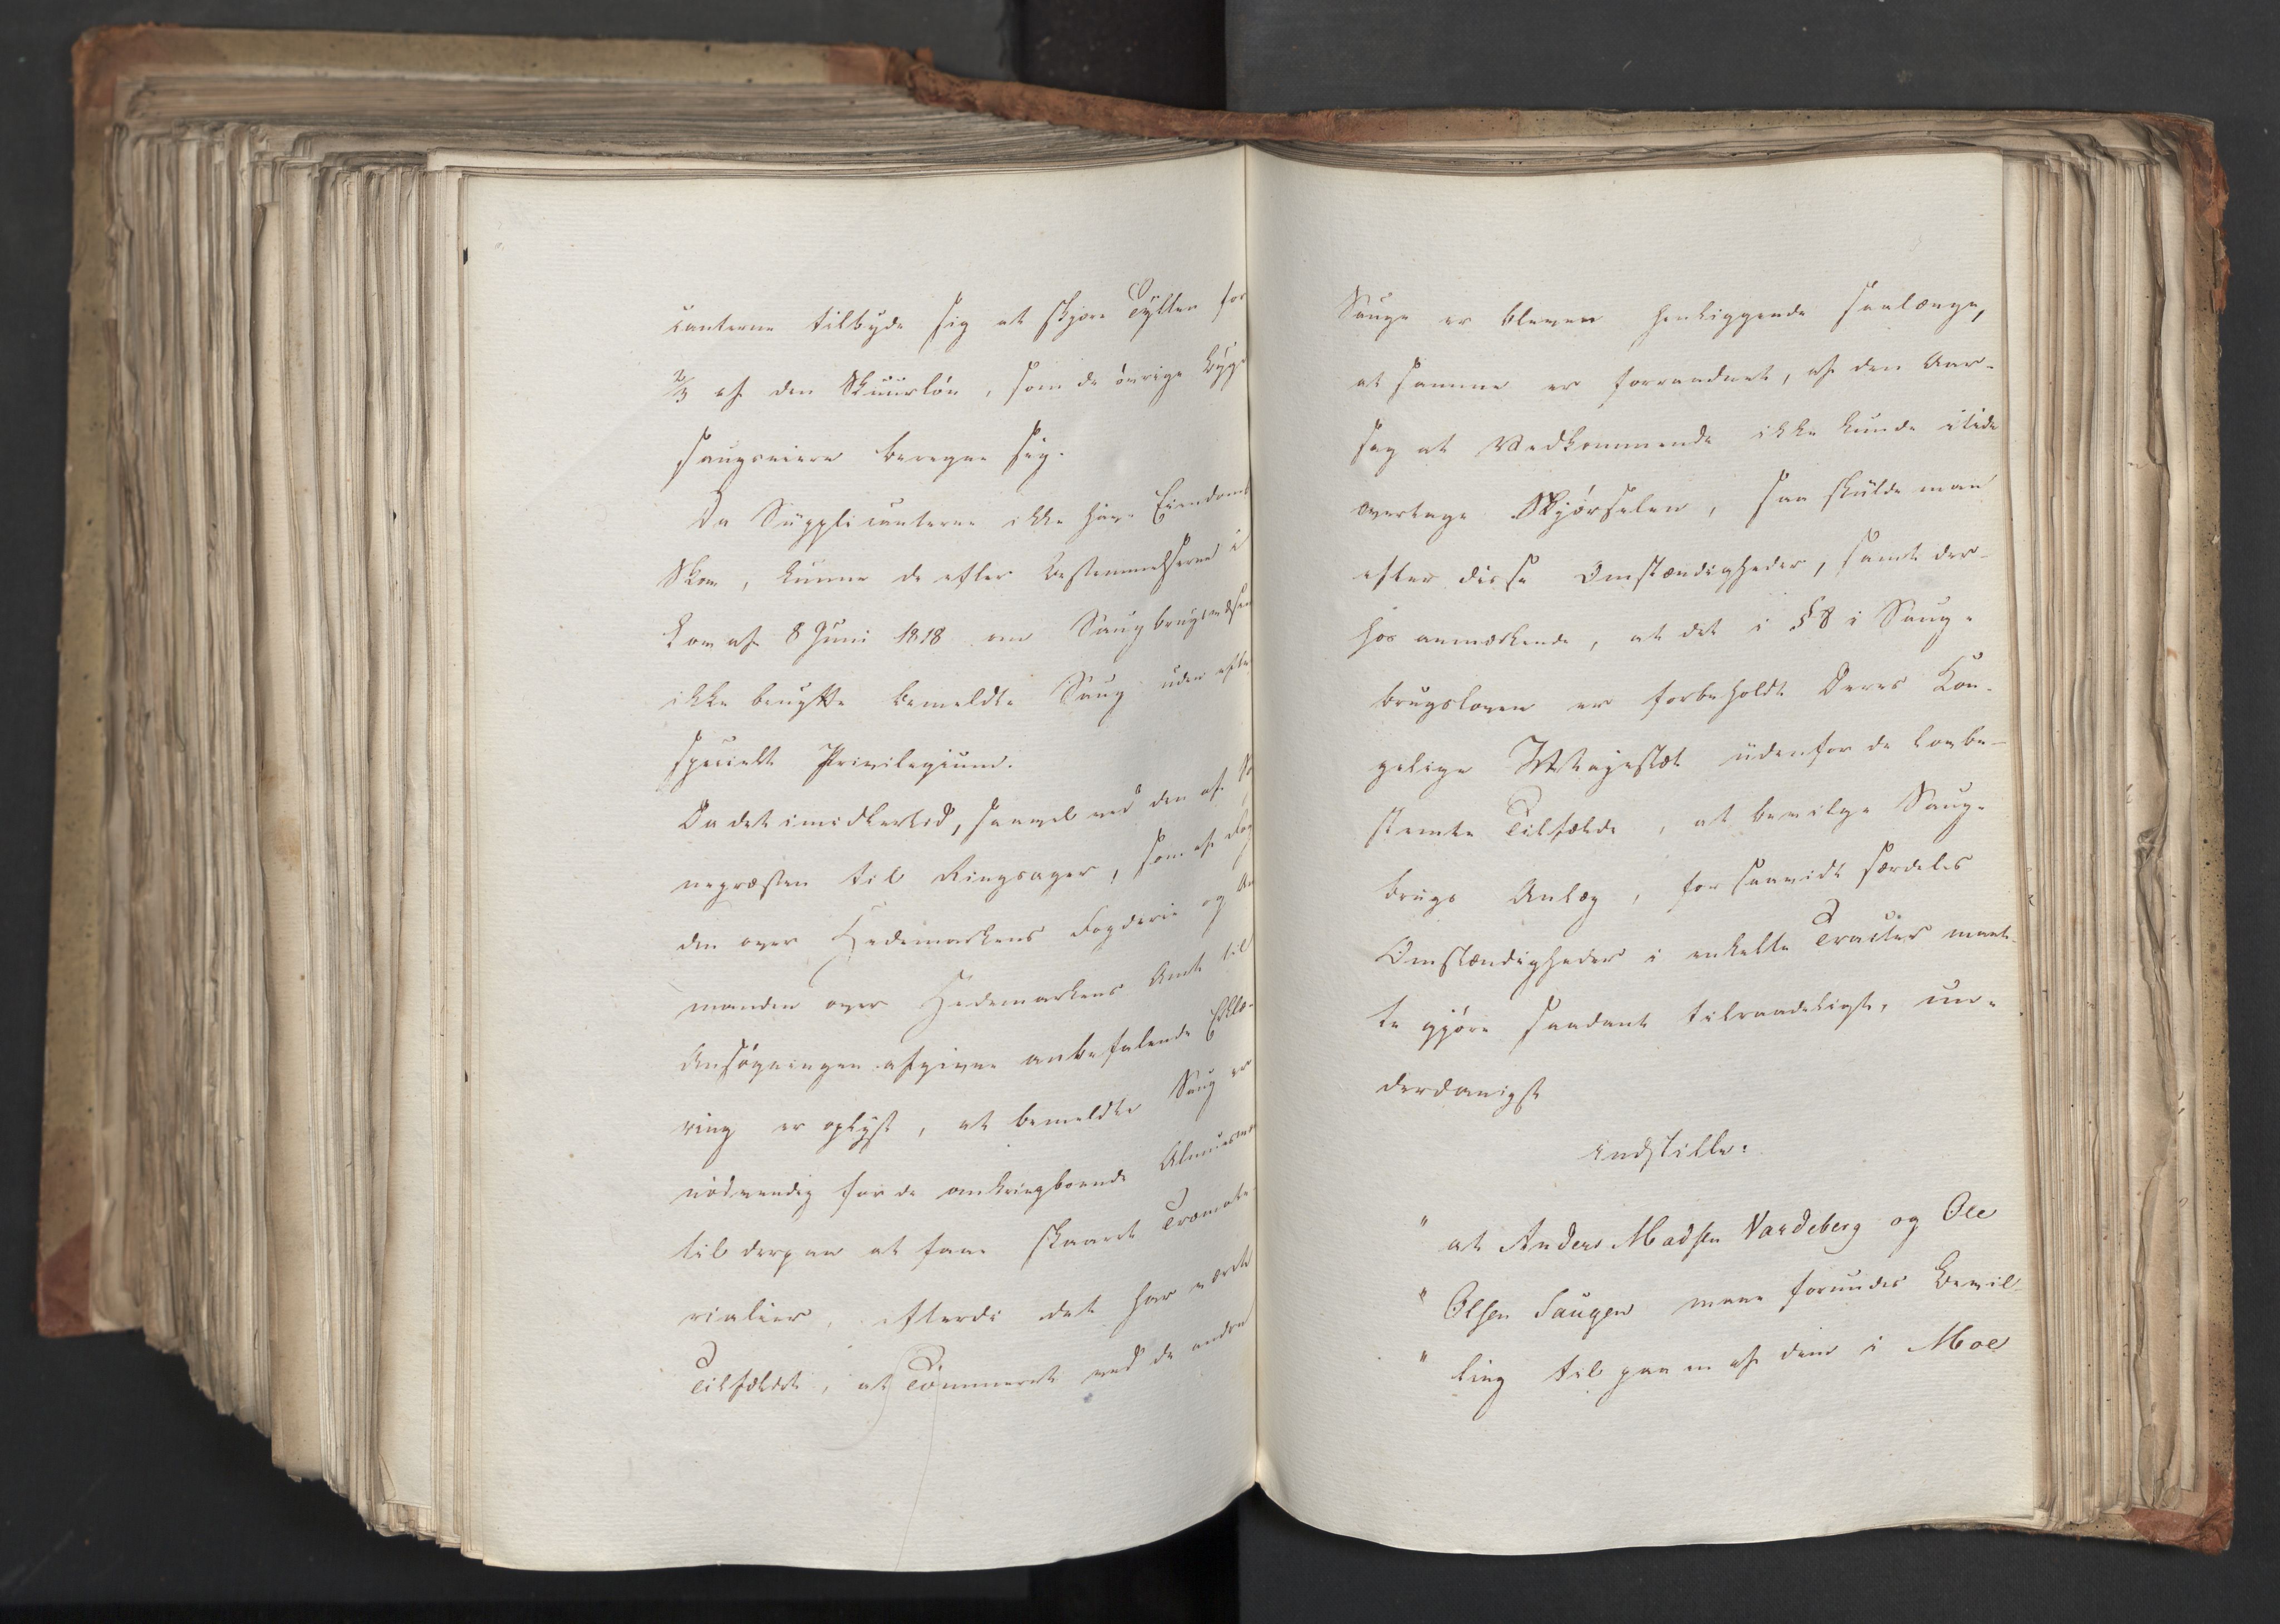 canterne tilbyde sig at skjære Tylten for
2/3 af den Skuurløn, som de øvrige Byg-
saugseiere beregne sig.
Da Supplicanterne ikke have Eiendoms
Skov, kunne de efter Bestemmelserne i
Lov af 8 Juni 1818 om Saugbrugsvæsen
ikke benytte bemeldte Saug uden efter
specielt Privilegium.
Da det imidlertid, saavel ved den af
nepræsten til Ringsager, som af Fog
den over Hedemarkens Fogderie og
manden over Hedemarkens Amt til
Ansøgningen afgivne anbefalende Erklæ-
ring er oplyst, at bemeldte Saug er
nødvendig for de omkringboende
til derpaa at faae skaaret Træmate-
rialier, efterdi det har været
Tilfældet, at Tømmeret ved de andre
Sauge er bleven henliggende saalænge,
at samme er forraadnet, af den Aar-
sag at Vedkommende ikke kunde itide
overtage Skjørselen, saa skulde man
efter disse Omstændigheder, samt der-
hos anmærkende, at det i § 8 i Saug-
brugsloven er forbeholdt Deres Kon-
gelige Majestæt udenfor de lovbe-
stemte Tilfælde, at bevilge Saug-
brugs Anlæg, forsaavidt særdeles
Omstændigheder i enkelte Tracter maat-
te gjøre saadant tilraadeligt, un-
derdanigst
indstille:
" at Anders Madsen Vardeberg og Ole
" Olsen Saugen maae forundes Bevil-
" ling til paa en af dem i Moe